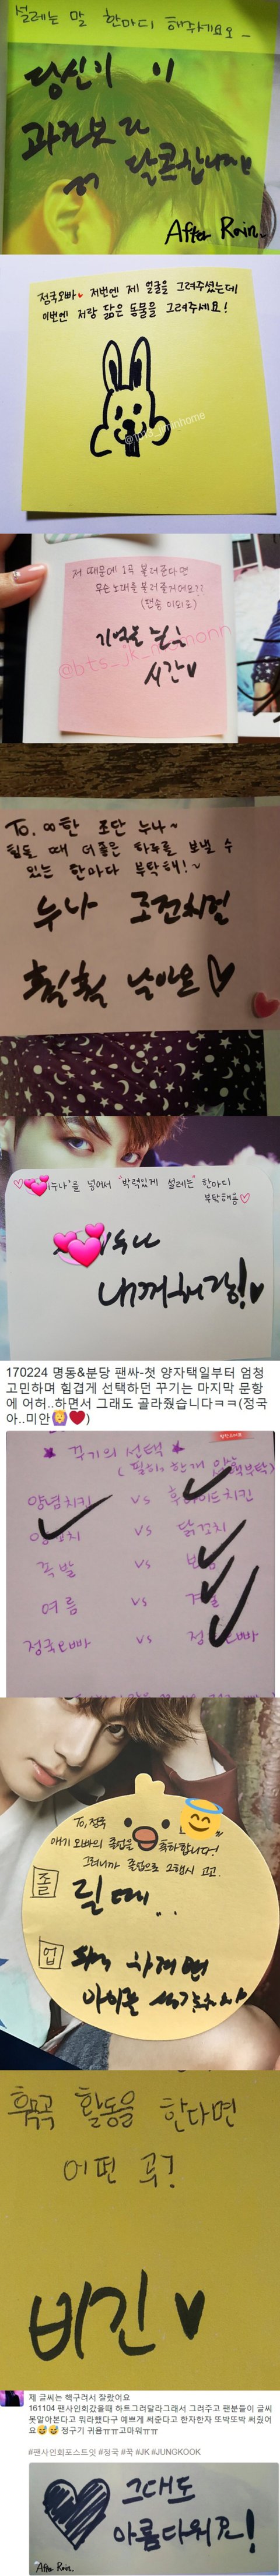 설레는 말 한마디 해주세요오~
당신이 이
과즙보다
더 달콤합니다
After Rain.
정국오빠♥ 저번엔 제 얼굴을 그려주셨는데
이번엔 저랑 닮은 동물을 그려주세요!
저 때문에 1곡 불러준다면
무슨 노래를 불러줄거에요??
(팬송 이외로)
기억을 걷는
시간♥
@bts_jk_
To. ∞한 조단 누나~
힘들 때 더좋은 하루를 보낼 수
있는 한마디 부탁해!~
누나 조던처럼
훨훨 날아요♡
누나'를 넣어서 "박력있게 설레는" 한마디
부탁해용♡
누나
내꺼해라!♥
170224 명동&분당 팬싸-첫 양자택일부터 엄청
고민하며 힘겹게 선택하던 꾸기는 마지막 문항
에 어허..하면서 그래도 골라줬습니다ㅋㅋ(정국
아..미안🙆❤)
★ 꾸기의 선택 ★
양념치킨 vs 후라이드치킨
vs 닭꼬치
족발 vs
여름 vs 겨울
정국오빠 vs 오빠
To. 정국
애기 오빠의 졸업을 축하합니다!
그러니까 졸업으로 2행시 고고.
졸
릴 때..
업
후속곡 활동을 한다면
어떤 곡?
비긴♥
제 글씨는 핵구려서 잘랐어요
161104 팬사인회갔을때 하트그려달라그래서 그려주고 팬분들이 글씨
못알아본다고 뭐라했다구 예쁘게 써준다고 한자한자 또박또박 써줬어
요😅😅 정구기 귀욤ㅠㅠ고마워ㅠㅠ
#팬사인회포스트잇 #정국 #꾹 #JK #JUNGKOOK
그대도
아름다워요!
After Rain.